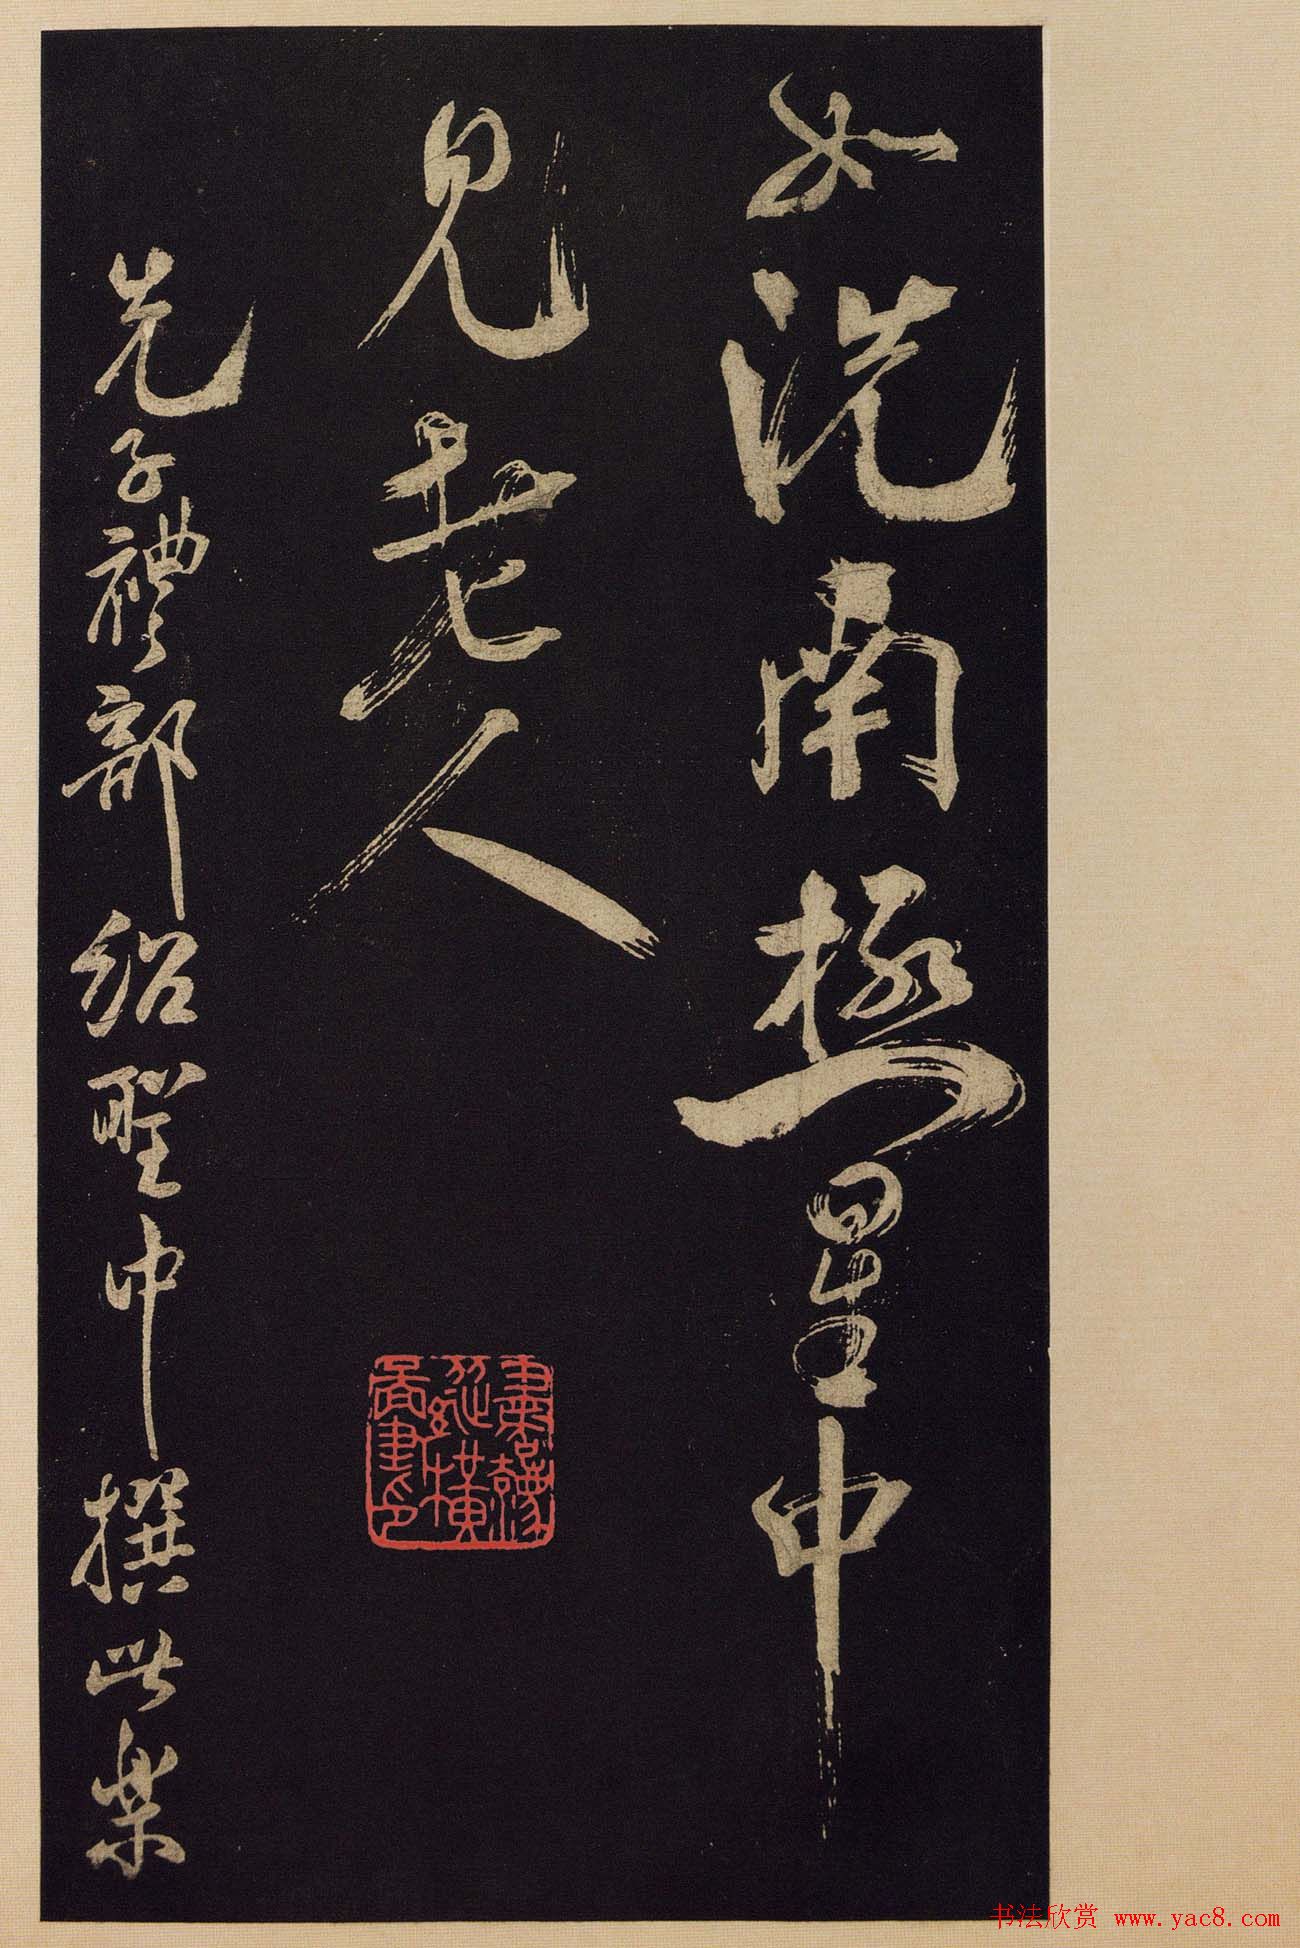 如洗南極星中
見老人
先子禮部紹聖中撰此樂
书法欣赏 www.yac8.com